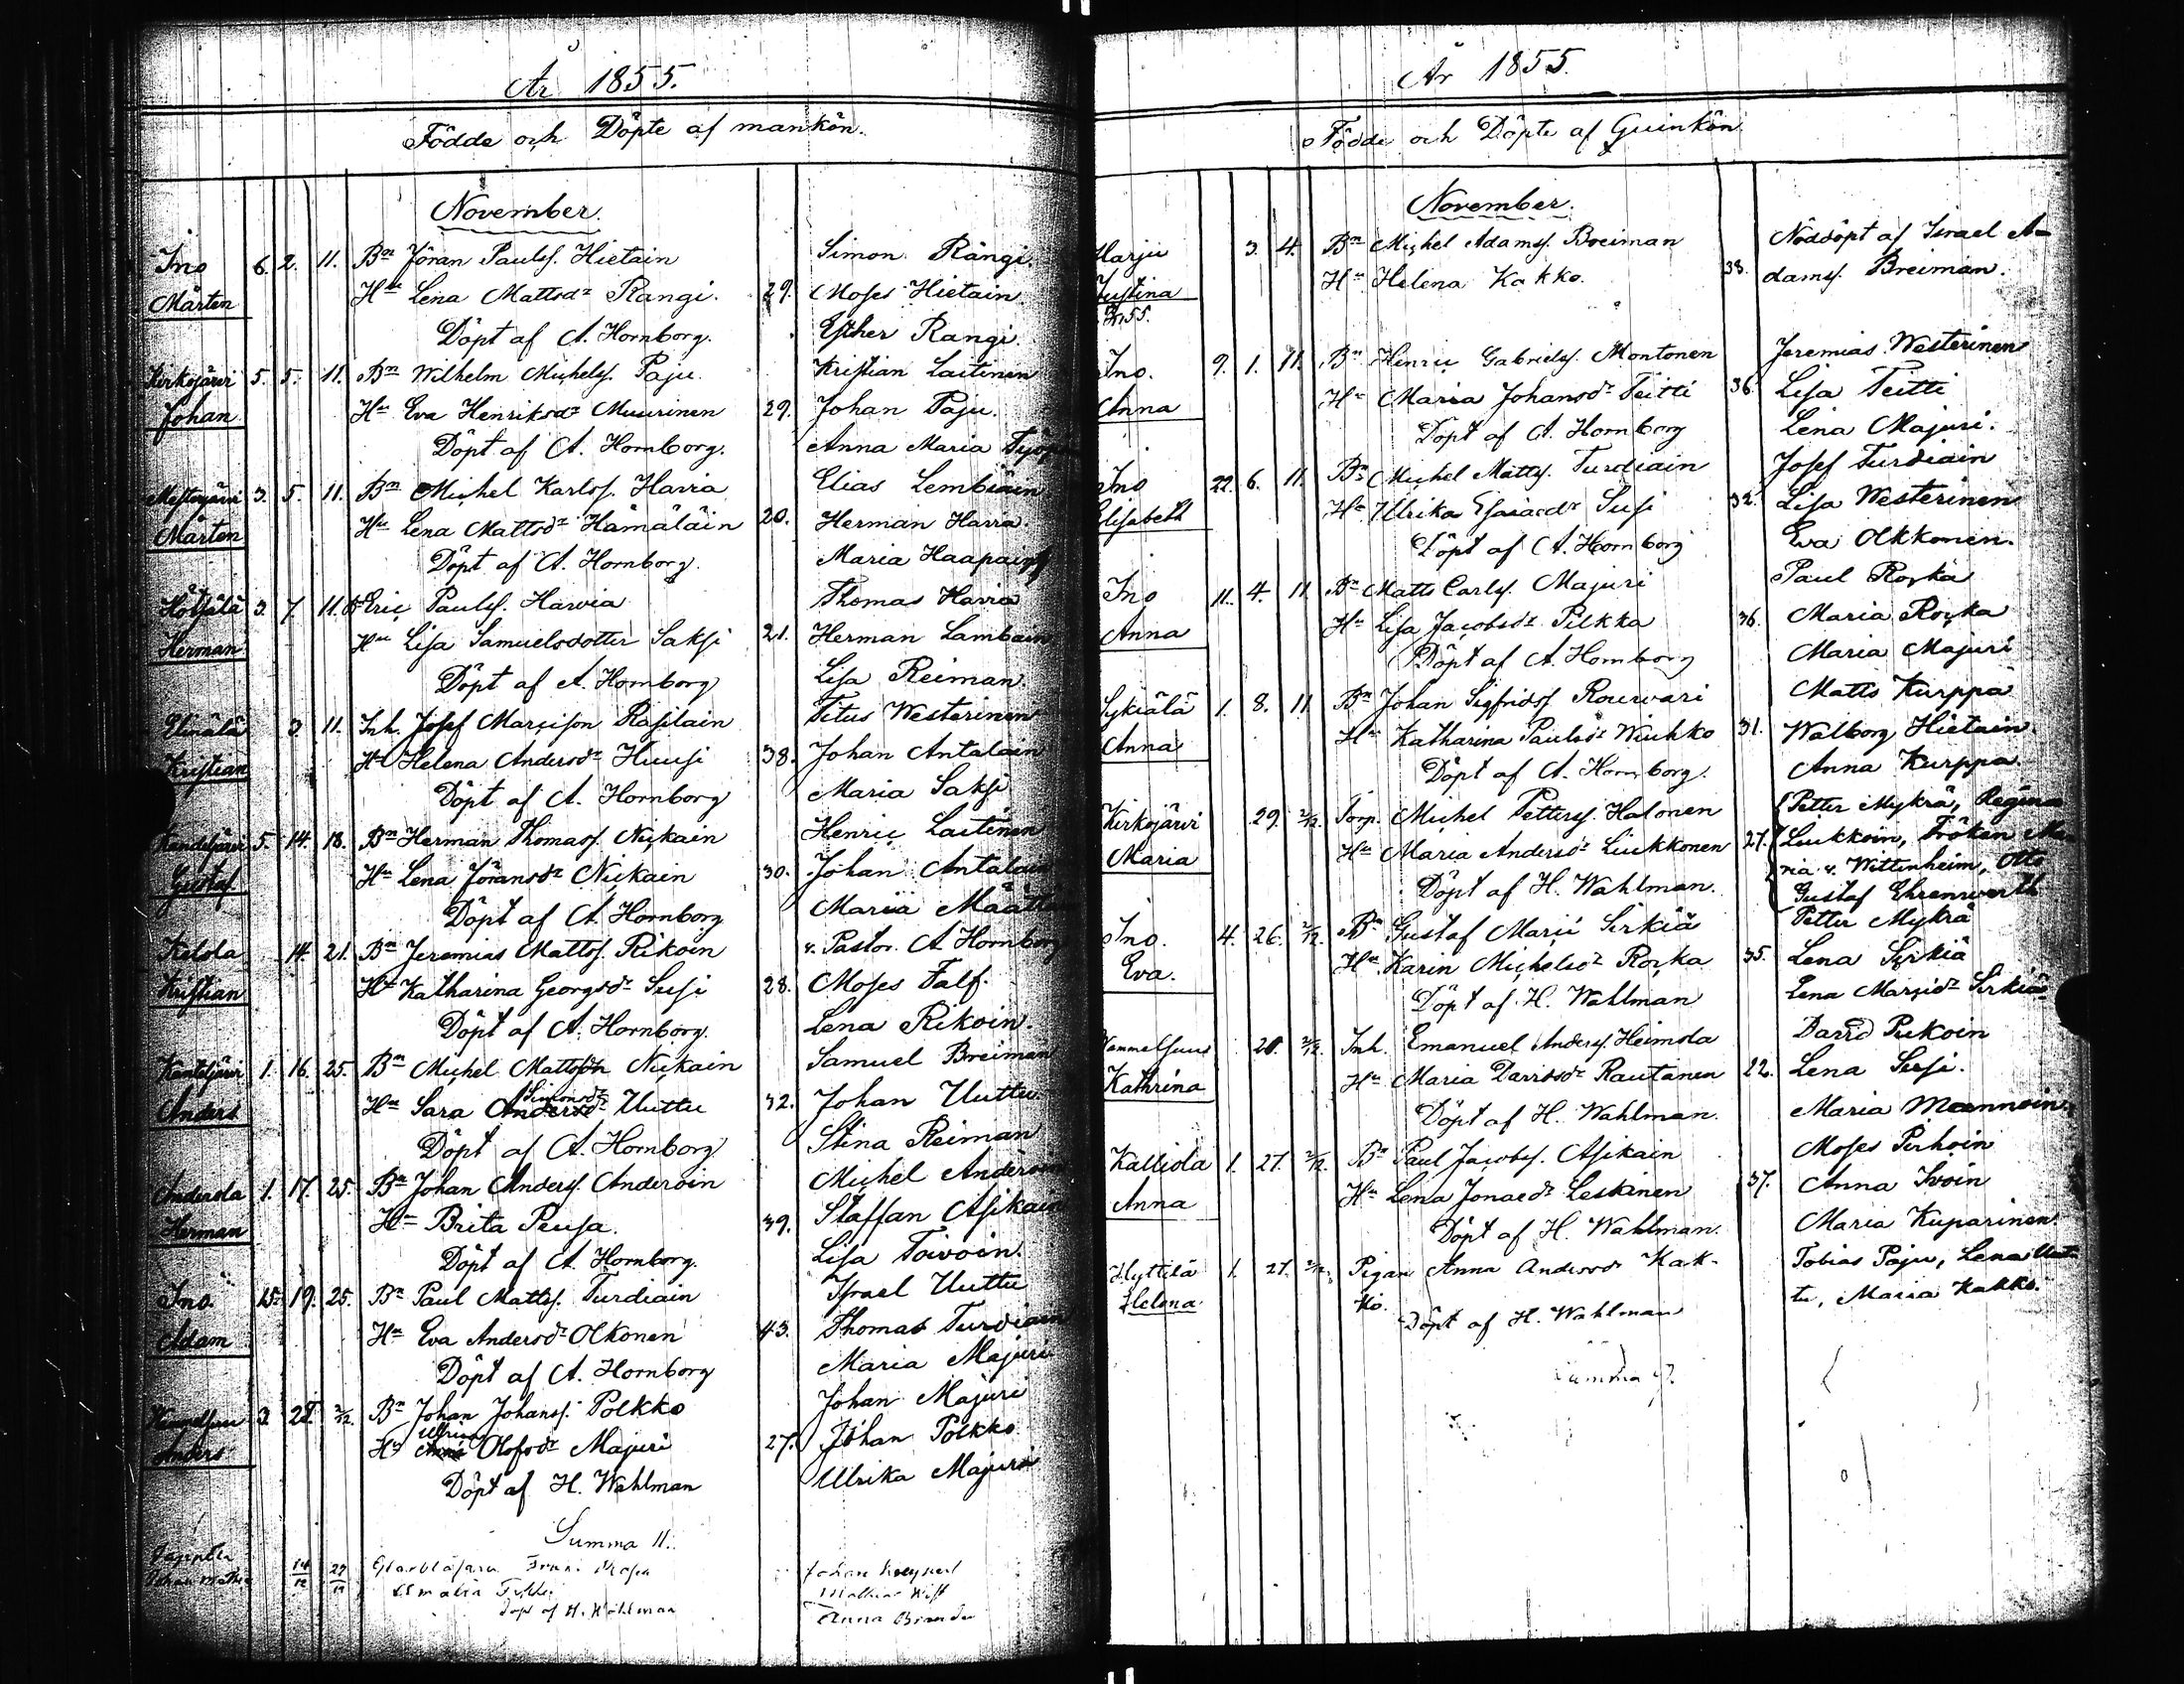 År 1855.
Födde och Döpte af mankön.
November.
Ino 6. 2. 11. Bn Jöran Paulss. Hietain Simon Rängi.
Mårten Hu Lena Mattsdr Rangi. 29. Moses Hietain
Döpt af A. Hornborg. Esther Rangi
Kirkojärvi 5. 5. 11. Bn Wilhelm Michelss. Paju Kristian Laitinen
Johan Hu Eva Henriksdr Muurinen 29. Johan Paju.
Döpt af A. Hornborg. Anna Maria
3. 5. 11. Bn Michel Karlss. Harria Elias Lembiäin
Mårten Hu Lena Mattsdr Hämäläin 20. Herman Harria.
Döpt af A. Hornborg. Maria Haapain
Hötsälä 3. 7. 11. Bn Eric Paulss. Harvia Thomas Harria
Herman Hu Lisa Samuelsdotter Saksi 21. Herman Lambain
Döpt af A. Hornborg Lisa Reiman.
Elinälä 3. 11. Inh. Josef Marcison Rasilain Titus Westerinen
Kristian Hu Helena Andersdr Huusi 38. Johan Antalain
Döpt af A. Hornborg Maria Saksi
5. 14. 18. Bn Herman Thomass. Nickain Henric Laitinen
Gustaf Hu Lena Jöransdr Nickain 30. Johan Antalain
Döpt af A. Hornborg Maria
Kekola 14. 21. Bn Jeremias Mattss. Rikoin v. Pastor A. Hornborg
Kristian Hu Katharina Georgsdr Susi 28. Moses Falf.
Döpt af A. Hornborg. Lena Rikoin.
1. 16. 25. Bn Michel Mattss. Nickain Samuel Breiman
Anders Hu Sara Simonsdr Uuttu 32. Johan Uuttu
Döpt af A. Hornborg Stina Reiman
Anderola 1. 17. 25. Bn Johan Anderss. Anderoin Michel Anderoin
Herman Hu Brita Peusa. 39. Staffan Asikain
Döpt af A. Hornborg. Lisa Toivoin.
Ino. 15. 19. 25. Bn Paul Mattss. Turdiain Israel Uuttu
Adam Hu Eva Andersdr Olkonen 43. Thomas Turdiain
Döpt af A. Hornborg Maria Majuri
3. 28. 2/12. Bn Johan Johanss. Polkko Johan Majuri
Anders Hu Ulrica Olofsdr Majuri 27. Johan Polkko
Döpt af H. Wahlman Ulrika Majuri
Summa 11.
14/12 27/12
Döpt af H. Wahlman Anna
År 1855.
Födde och Döpte af Quinkön
November.
Harju 3. 4. Bn Michel Adamss. Breiman Nöddöpt af Israel A-
Justina Hu Helena Kakko. 38. damss. Breiman.
Ino. 9. 1. 11. Bn Henric Gabrielss. Montonen Jeremias Westerinen
Anna Hu Maria Johansdr Teitti 36. Lisa Teitti
Döpt af A. Hornborg Lena Majuri.
Ino 22. 6. 11. Bn Michel Mattss. Turdiain Josef Turdiain
Elisabeth Hu Ulrika Esaiaedr Susi 32. Lisa Westerinen
Döpt af A. Hornborg Eva Olkkonen.
Ino 11. 4. 11. Bn Matts Carlss. Majuri Paul Rocka
Anna Hu Lisa Jacobsdr Pilkka 36. Maria Rocka
Döpt af A. Hornborg Maria Majuri
Sykiälä 1. 8. 11. Bn Johan Sigfridss. Rourvari Matts Kurppa
Anna Hu Katharina Paulsdr Wiuhko 31. Walborg Hietain.
Döpt af A. Hornborg. Anna Kurppa.
Kirkojärvi 29. 2/12. Torp. Michel Petterss. Halonen Petter Mykrä, Regina
Maria Hu Maria Andersdr Liukkonen 27. Liukkoin, Fröken Ma-
Döpt af H. Wahlman. ria v. Wittenheim, Otto
Gustaf Ehrenwerth
Ino. 4. 26. 2/12. Bn Gustaf Marci Sirkiä Petter Mykrä
Eva. Hu Karin Michelsdr Rocka 35. Lena Sirkiä
Döpt af H. Wahlman Lena Marcidr Sirkiä.
Wammelsuu 28. 2/12. Inh. Emanuel Anderss. Heimola David Pukoin
Kathrina Hu Maria Davidsdr Rautanen 22. Lena Susi.
Döpt af H. Wahlman. Maria Mannoin.
Kalliola 1. 27. 2/12. Bn Paul Jacobss. Asikain Moses Pirhoin
Anna Hu Lena Jonaedr Leskinen 37. Anna Ivoin
Döpt af H. Wahlman. Maria Kuparinen.
Hyttilä 1. 21. 2/12. Pigan Anna Andersdr Kak- Tobias Paju, Lena Uut-
Helena ko. tu, Maria Kakko.
Döpt af H. Wahlman
Summa 9.